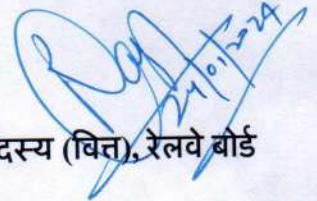 24/01/2024
दस्य (वित्त), रेलवे बोर्ड